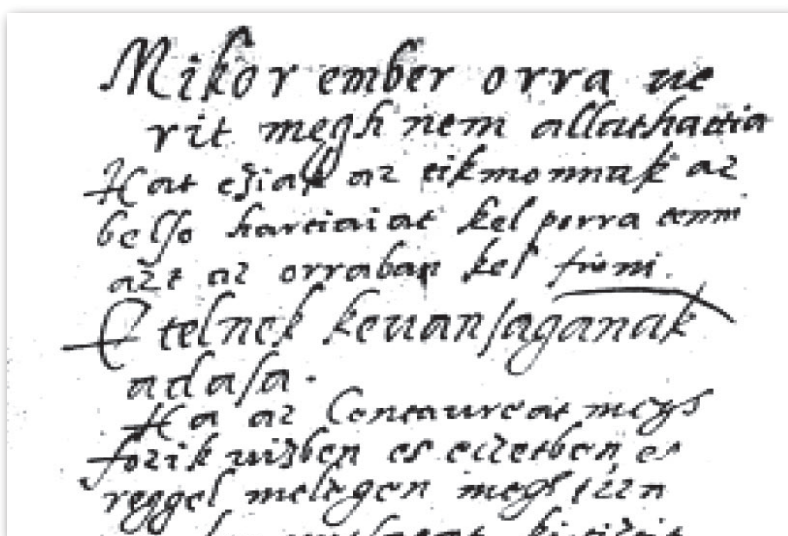 Mikor ember orra ve
rit megh nem allathattia
Hat eziak az tikmonnak az
belso hartiaiat kel porra tenni
azt az orraban kel fuuni.
Etelnek kevansaganak
adasa.
Ha az Centaureat megh
fözik vizben es eczetben es
reggel melegen megh